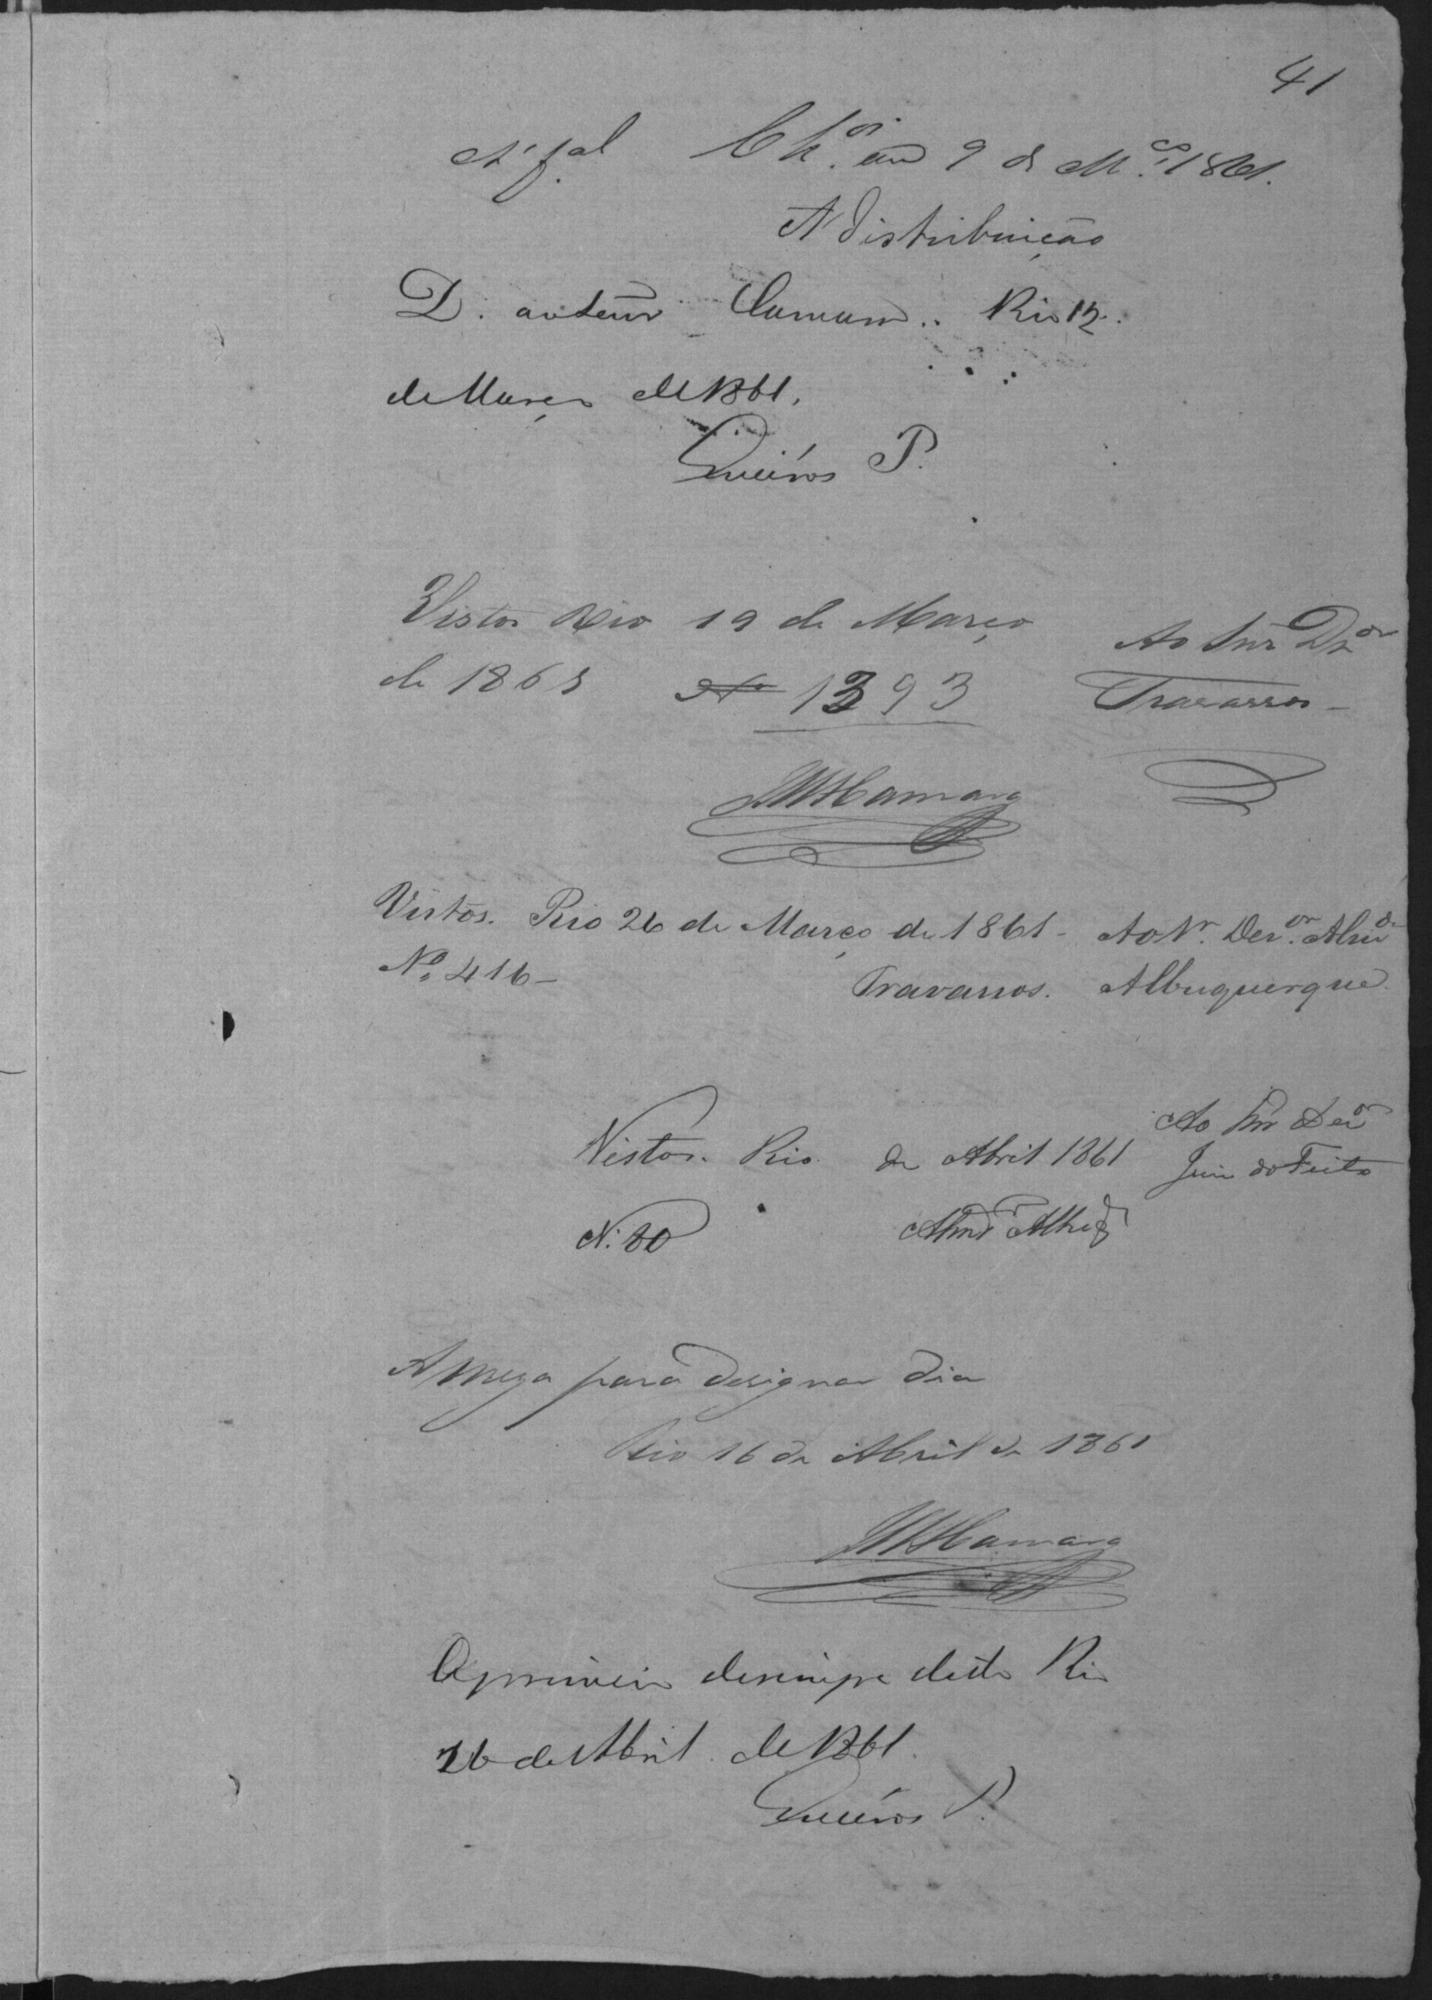 41
Ch.os em 9 de M.ço 1861.
A distribuição
D. ao Senr Camara. Rio 12
de Março de 1861.
Queirós P.
Vistos Rio 19 de Março
de 1861 No 1393
Ao Snr Dz.or
Travassos
JM Camara
Vistos. Rio 26 de Março de 1861 - Ao Sr. Dez.or Alm.da
No. 416 - Travassos. Albuquerque
Vistos. Rio de Abril 1861
Ao Snr Dez.or
Juiz do Feito
N. 80 Almd.a Albuq
A meza para designar dia
Rio 16 de Abril de 1861
JM Camara
O primeiro desimpedido Rio
26 de Abril de 1861.
Queirós P.